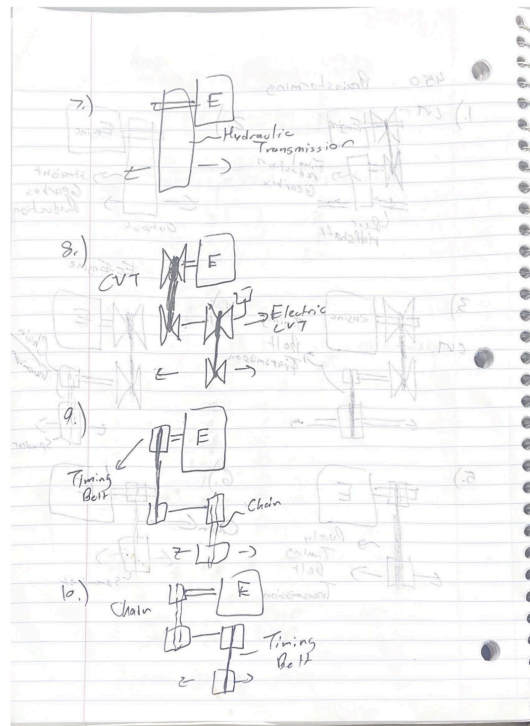 7.)
E
Hydraulic
Transmission
8.)
CVT
E
Electric
CVT
9.)
E
Timing
Belt
Chain
10.)
Chain
E
Timing
Belt